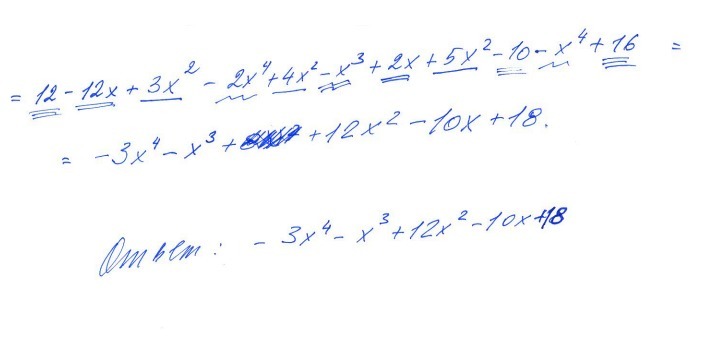 = 12 - 12x + 3x² - 2x⁴ + 4x² - x³ + 2x + 5x² - 10 - x⁴ + 16 =
= -3x⁴ - x³ + + 12x² - 10x + 18.
Ответ: - 3x⁴ - x³ + 12x² - 10x + 18